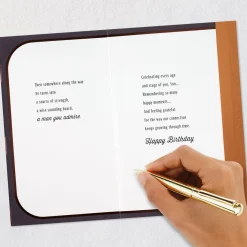 Then somewhere along the way
he turns into
a source of strength,
a wise sounding board,
a man you admire.
Celebrating every age
and stage of you, Son...
Remembering so many
happy moments...
And feeling grateful
for the way our connection
keeps growing through time.
Happy Birthday